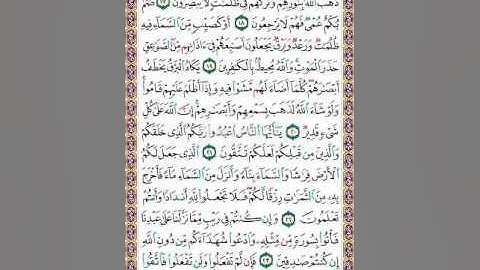 ذَهَبَ ٱللَّهُ بِنُورِهِمْ وَتَرَكَهُمْ فِى ظُلُمَٰتٍ لَّا يُبْصِرُونَ ١٧ صُمٌّۢ
بُكْمٌ عُمْىٌ فَهُمْ لَا يَرْجِعُونَ ١٨ أَوْ كَصَيِّبٍ مِّنَ ٱلسَّمَآءِ فِيهِ
ظُلُمَٰتٌ وَرَعْدٌ وَبَرْقٌ يَجْعَلُونَ أَصَٰبِعَهُمْ فِىٓ ءَاذَانِهِم مِّنَ ٱلصَّوَٰعِقِ
حَذَرَ ٱلْمَوْتِ وَٱللَّهُ مُحِيطٌۢ بِٱلْكَٰفِرِينَ ١٩ يَكَادُ ٱلْبَرْقُ يَخْطَفُ
أَبْصَٰرَهُمْ كُلَّمَآ أَضَآءَ لَهُم مَّشَوْا۟ فِيهِ وَإِذَآ أَظْلَمَ عَلَيْهِمْ قَامُوا۟
وَلَوْ شَآءَ ٱللَّهُ لَذَهَبَ بِسَمْعِهِمْ وَأَبْصَٰرِهِمْ إِنَّ ٱللَّهَ عَلَىٰ كُلِّ
شَىْءٍ قَدِيرٌ ٢٠ يَٰٓأَيُّهَا ٱلنَّاسُ ٱعْبُدُوا۟ رَبَّكُمُ ٱلَّذِى خَلَقَكُمْ
وَٱلَّذِينَ مِن قَبْلِكُمْ لَعَلَّكُمْ تَتَّقُونَ ٢١ ٱلَّذِى جَعَلَ لَكُمُ
ٱلْأَرْضَ فِرَٰشًا وَٱلسَّمَآءَ بِنَآءً وَأَنزَلَ مِنَ ٱلسَّمَآءِ مَآءً فَأَخْرَجَ
بِهِۦ مِنَ ٱلثَّمَرَٰتِ رِزْقًا لَّكُمْ فَلَا تَجْعَلُوا۟ لِلَّهِ أَندَادًا وَأَنتُمْ
تَعْلَمُونَ ٢٢ وَإِن كُنتُمْ فِى رَيْبٍ مِّمَّا نَزَّلْنَا عَلَىٰ عَبْدِنَا
فَأْتُوا۟ بِسُورَةٍ مِّن مِّثْلِهِۦ وَٱدْعُوا۟ شُهَدَآءَكُم مِّن دُونِ ٱللَّهِ
إِن كُنتُمْ صَٰدِقِينَ ٢٣ فَإِن لَّمْ تَفْعَلُوا۟ وَلَن تَفْعَلُوا۟ فَٱتَّقُوا۟